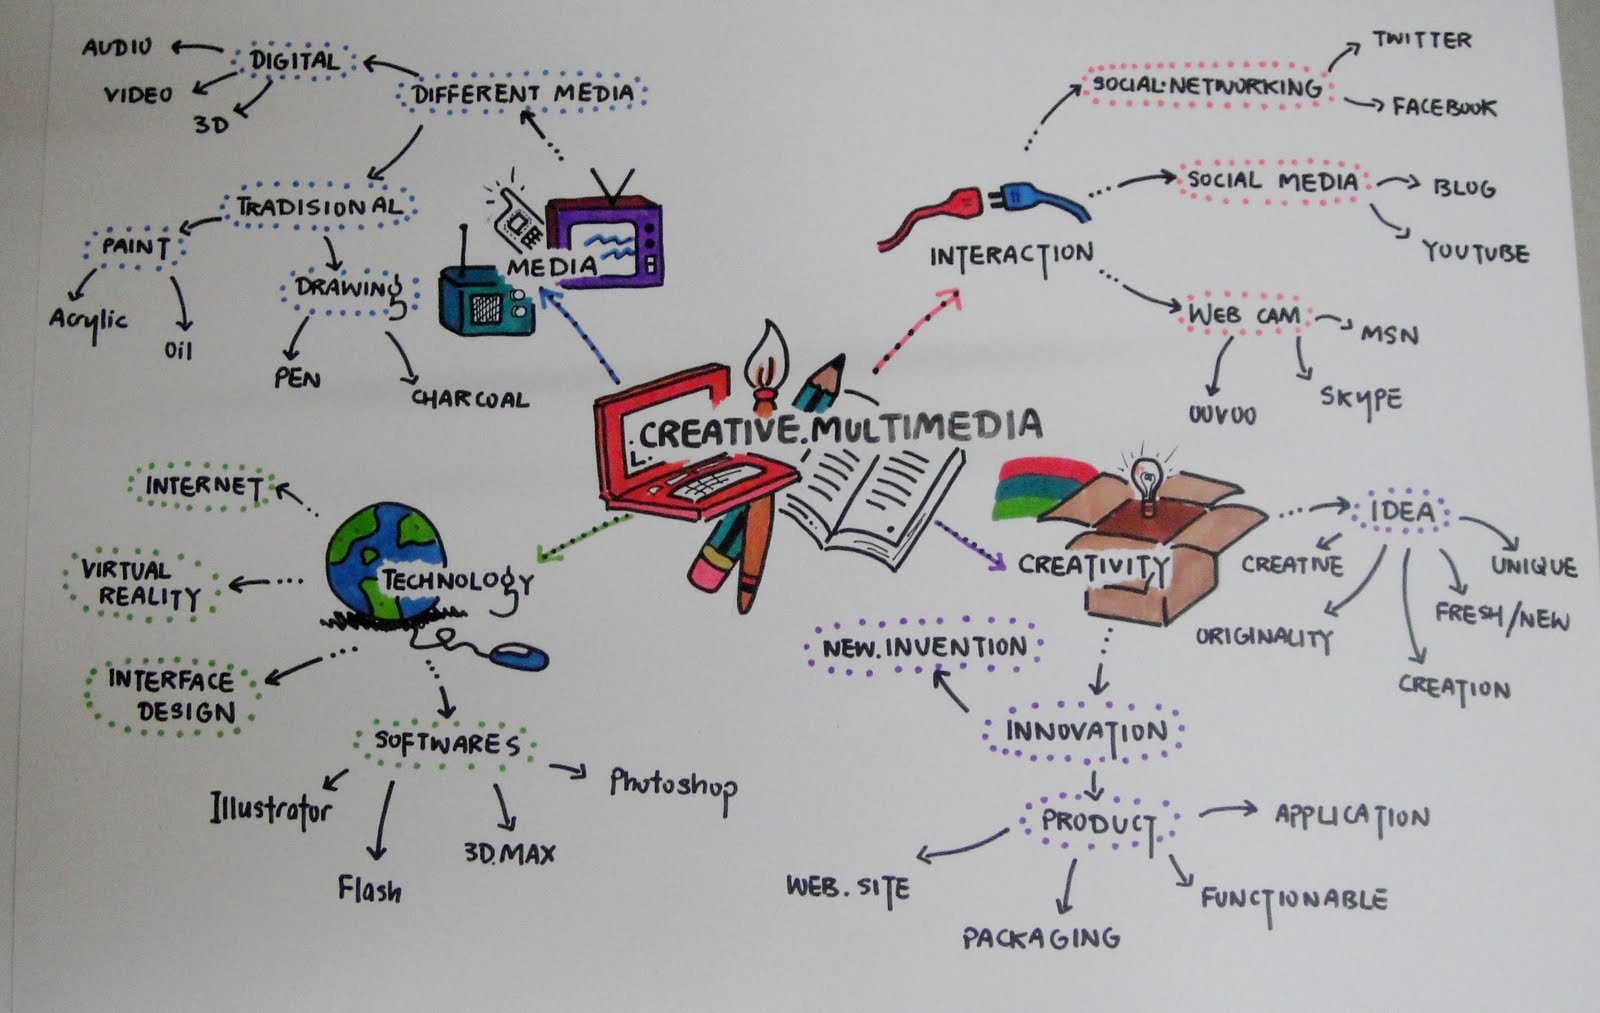 CREATIVE.MULTIMEDIA
MEDIA
DIFFERENT MEDIA
DIGITAL
AUDIO
VIDEO
3D
TRADISIONAL
PAINT
Acrylic
Oil
DRAWING
PEN
CHARCOAL
INTERACTION
SOCIAL.NETWORKING
TWITTER
FACEBOOK
SOCIAL MEDIA
BLOG
YOUTUBE
WEB CAM
MSN
SKYPE
OOVOO
TECHNOLOGY
INTERNET
VIRTUAL
REALITY
INTERFACE
DESIGN
SOFTWARES
Illustrator
Flash
3D.MAX
Photoshop
CREATIVITY
IDEA
CREATIVE
ORIGINALITY
CREATION
FRESH/NEW
UNIQUE
INNOVATION
NEW.INVENTION
PRODUCT
WEB.SITE
PACKAGING
FUNCTIONABLE
APPLICATION